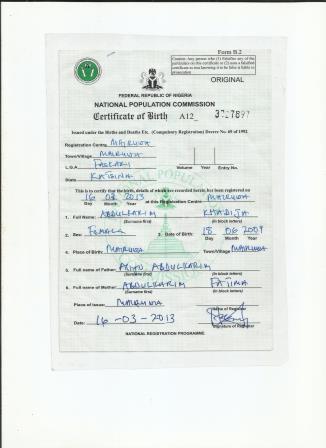 Form B.2
Caution: Any person who (1) falsifies any of the
particulars on this certificate or (2) uses a falsified
certificate as true knowing it to be false is liable to
prosecution
ORIGINAL
FEDERAL REPUBLIC OF NIGERIA
NATIONAL POPULATION COMMISSION
Certificate of Birth A12
Issued under the Births and Deaths Etc. (Compulsory Registration) Decree No. 69 of 1992
Registration Centre MAIRUWA
Town/Village MAIRUWA
L.G.A FASKARI Volume Year Entry No.
State KATSINA
This is to certify that the birth, details of which are recorded herein, has been registered on
16 03 2013 at this Registration Centre MAIRUWA
Day Month Year
1. Full Name: ABDULKARIM KHADIJA
(Surname first) (in block letters)
2. Sex: FEMALE 3. Date of Birth: 18 06 2009
Day Month Year
4. Place of Birth MAIRUWA Town/Village MAIRUWA
5. Full name of Father: ABDULKARIM
(Surname first) (in block letters)
6. Full name of Mother: ABDULKARIM FATIMA
(Surname first) (in block letters)
Place of Issue: MAIRUWA
Name of Registrar
Date: 16-03-2013
Signature of Registrar
NATIONAL REGISTRATION PROGRAMME